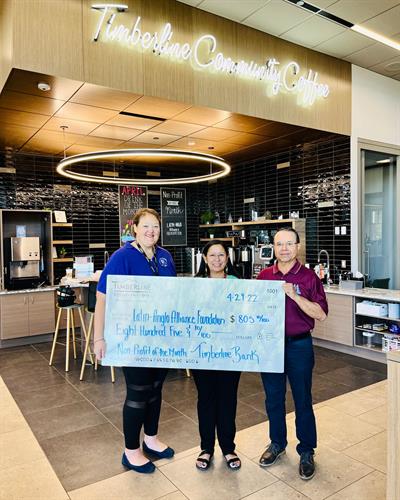 Timberline Community Coffee
APRIL
Non-Profit
of the
Month
TIMBERLINE
4-29-22
Latin-Anglo Alliance Foundation $ 805 10/100
Eight Hundred Five & 10/100
DOLLARS
Non-Profit of the Month Timberline Bank